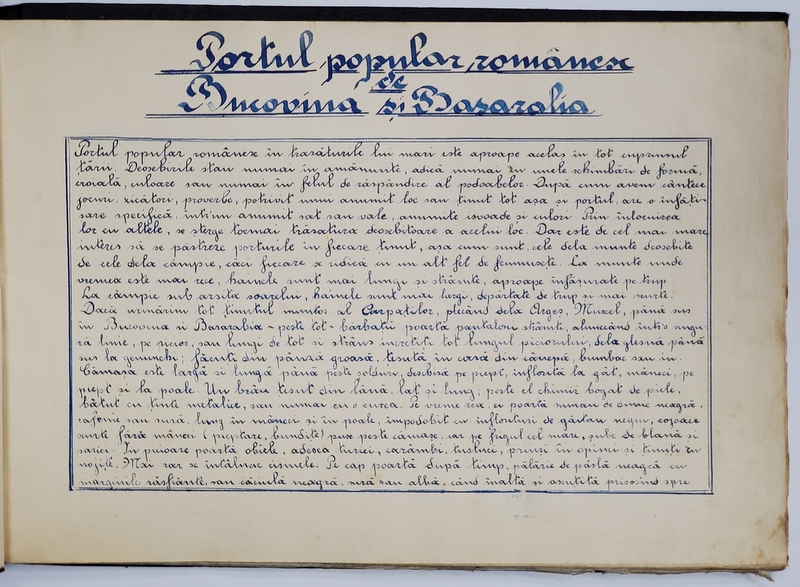 Portul popular românesc
de
Bucovina și Basarabia
Portul popular românesc în trasăturile lui mari este aproape acelaș în tot cuprinsul
tării. Deosebirile stau numai în amănunte, adică numai în unele schimbări de formă,
croială, culoare sau numai în felul de răspândire al podoabelor. După cum avem cântece
jocuri, zicători, proverbe, potrivit unui anumit loc sau ținut tot așa și portul, are o înfăți-
sare specifică. într'un anumit sat sau vale, anumite isvoade și culori. Prin înlocuirea
lor cu altele, se sterge tocmai trăsătura deosebitoare a acelui loc. Dar este de cel mai mare
interes să se păstreze porturile în fiecare ținut, așa cum sunt, cele dela munte deosebite
de cele dela câmpie, căci fiecare se ridică cu un alt fel de frumusețe. La munte unde
vremea este mai rece, hainele sunt mai lungi și strâmte, aproape înfășurate pe trup.
La câmpie sub arsița soarelui, hainele sunt mai largi, depărtate de trup și mai scurte.
Dacă urmărim tot ținutul muntos al Carpaților, plecând dela Argeș, Muscel, până sus
în Bucovina și Basarabia - peste tot - bărbații poartă pantaloni strâmti, alunecând într'o singu-
ră linie, pe picior, sau lungi de tot și strâns încrețiți tot lungul piciorului, dela glesnă până
sus la genunchi; făcuți din pânză groasă, țesută în casă din cânepă, bumbac sau in.
Cămașa este largă și lungă până peste șolduri, deschisă pe piept, înflorită la gât, mâneci, pe
piept și la poale. Un brâu țesut din lână, lat și lung; peste el chimir bogat de piele,
bătut cu ținte metalice, sau numai cu o curea. Pe vreme rea, ei poartă suman de dimie neagră,
cafenie sau sură, lung în mâneci și în poale, împodobit cu înflorituri de găitan negru; cojoace
scurte fără mâneci (pieptare, bundițe) puse peste cămașe, iar pe frigul cel mare, șube de blană și
sarici. În picioare poartă obiele, adesea tureci, carâmbi, tusluci, prinși în opinci și ținuți cu
nojițe. Mai rar se întâlnesc cismele. Pe cap poartă după timp, pălărie de pâslă neagră cu
marginile răsfrânte, sau căciulă neagră, sură sau albă, când înaltă și ascuțită prisosind spre